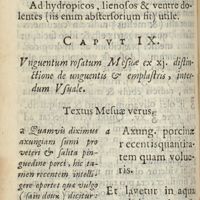 Ad hydropicos, lienosos & ventre do-
lentes (iis enim absterſorium ſit) utile.
CAPVT IX.
Vnguentum roſatum Meſuæ ex xj. diſtin-
ctione de unguentis & emplaſtris, inter-
dum Vſuale.
Textus Meſuæ verus.
a Quamvis diximus
axungiam ſumi pro
veteri & ſalita pin-
guedine porci, hic ta-
men recentem intelli-
gere oportet quæ vulgo
(ſain doux) dicitur:
a Axung. porcinæ
recentis quantita-
tem quam volue-
ris.
Et lavetur in aqua